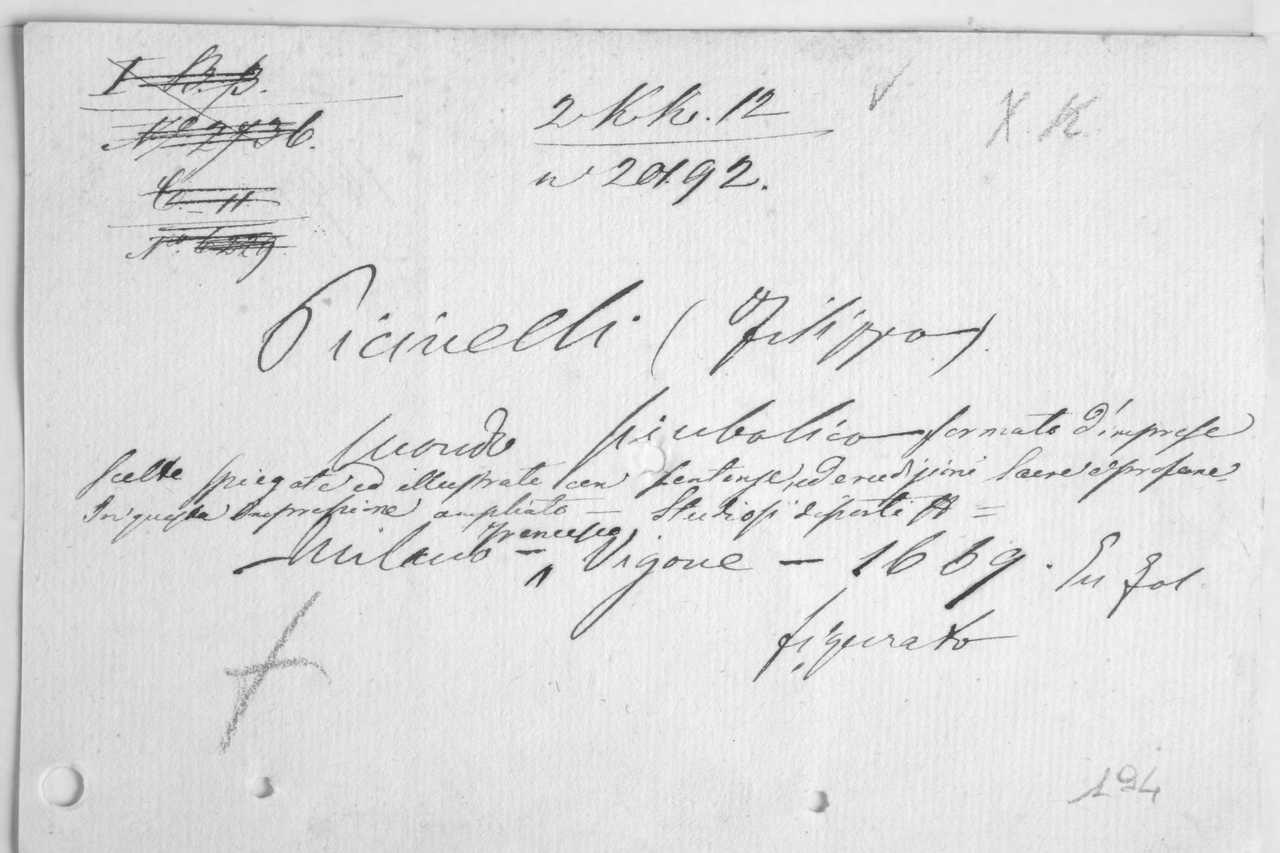 I B. 3.
Nº 2736.
C. 11
Nº. 6229.
2 K k. 12
nº 20192.
X. K.
Picinelli (Filippo).
Mondo Simbolico formato d'imprese
scelte spiegate ed illustrate con sentenze, ed erudizioni sacre e profane
In questa Impressione ampliato — Studiosi diporti =
— Milano — Francesco Vigone — 1669. In fol.
figurato
194